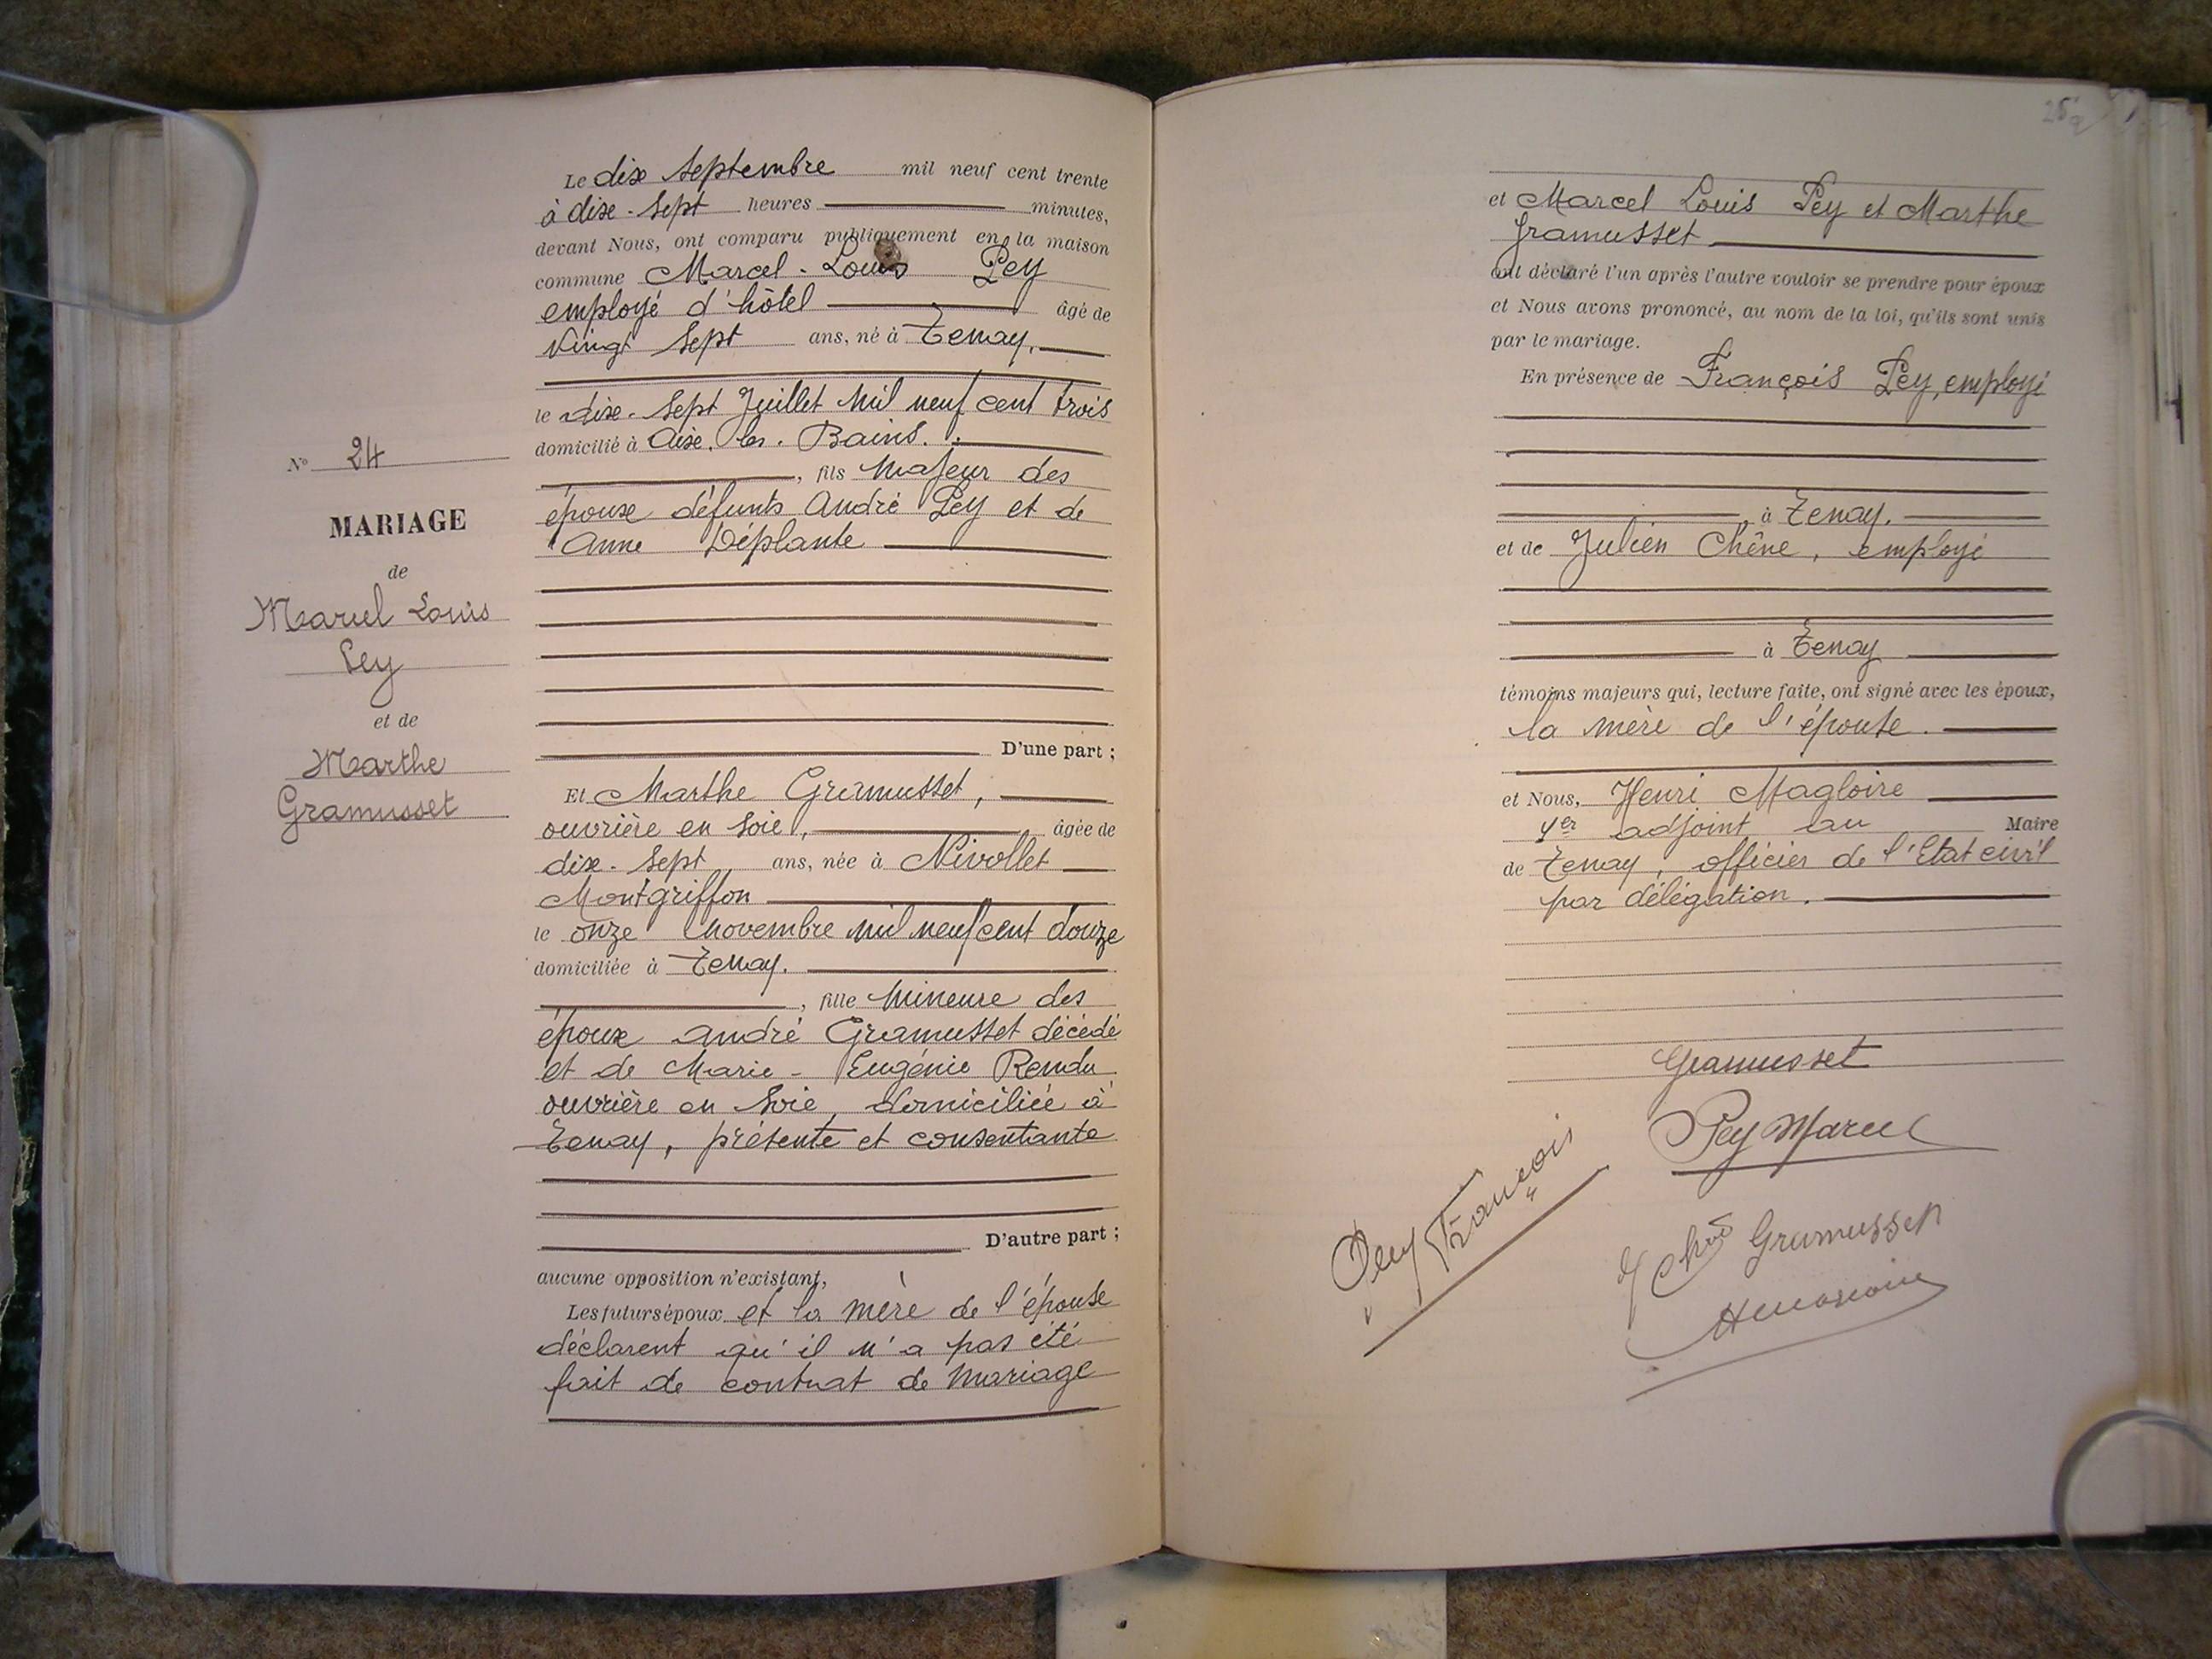 Le dix Septembre mil neuf cent trente
à dix-sept heures minutes,
devant Nous, ont comparu publiquement en la maison
commune Marcel-Louis Pey
employé d'hôtel âgé de
vingt sept ans, né à Tenay,
le dix-sept Juillet mil neuf cent trois
domicilié à Aix-les-Bains.
, fils majeur des
époux défunts André Pey et de
Anne Déplante
D'une part ;
Et Marthe Gramusset,
ouvrière en soie, âgée de
dix-sept ans, née à Nivollet
Montgriffon
le onze novembre mil neuf cent douze
domiciliée à Tenay.
, fille mineure des
époux André Gramusset décédé
et de Marie-Eugénie Rendu
ouvrière en soie, domiciliée à
Tenay, présente et consentante
D'autre part ;
aucune opposition n'existant,
Les futurs époux et la mère de l'épouse
déclarent qu'il n'a pas été
fait de contrat de mariage
N° 24
MARIAGE
de
Marcel Louis
Pey
et de
Marthe
Gramusset
et Marcel Louis Pey et Marthe
Gramusset
ont déclaré l'un après l'autre vouloir se prendre pour époux
et Nous avons prononcé, au nom de la loi, qu'ils sont unis
par le mariage.
En présence de François Pey, employé
à Tenay.
et de Julien Chêne, employé
à Tenay
témoins majeurs qui, lecture faite, ont signé avec les époux,
la mère de l'épouse.
et Nous, Henri Magloire
1er adjoint au Maire
de Tenay, officier de l'Etat civil
par délégation.
Gramusset
Pey Marcel
Pey François
Gramusset